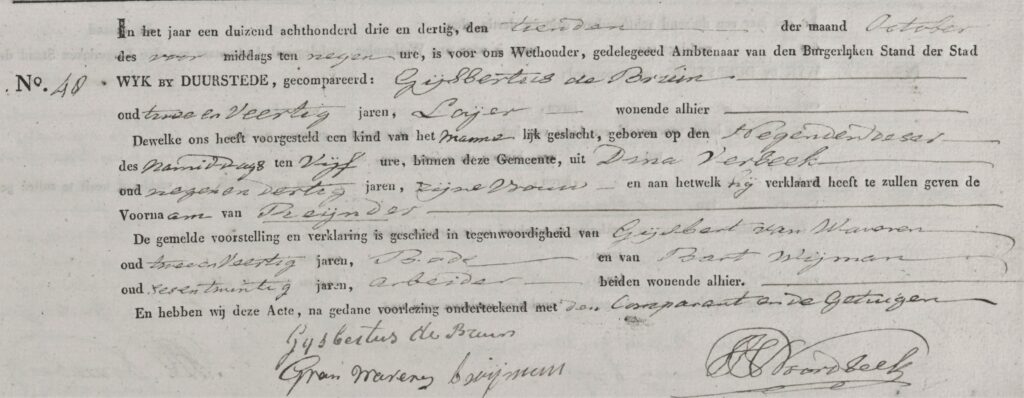 In het jaar een duizend achthonderd drie en dertig, den tienden der maand October
des voor middags ten negen ure, is voor ons Wethouder, gedelegeerd Ambtenaar van den Burgerlijken Stand der Stad
No. 48 WYK BY DUURSTEDE, gecompareerd: Gijsbertus de Bruin
oud twee en Veertig jaren, Looijer wonende alhier
Dewelke ons heeft voorgesteld een kind van het manne lijk geslacht, geboren op den Negenden dezer
des Namiddags ten Vijf ure, binnen deze Gemeente, uit Dina Verbeek
oud negen en dertig jaren, zijne Vrouw en aan hetwelk hij verklaard heeft te zullen geven de
Voornaam van Reijnder
De gemelde voorstelling en verklaring is geschied in tegenwoordigheid van Gijsbert van Waveren
oud twee en Veertig jaren, Bode en van Bart Wijman
oud zesentwintig jaren, arbeider beiden wonende alhier.
En hebben wij deze Acte, na gedane voorlezing onderteekend met den Comparant en de Getuigen
Gijsbertus de Bruin
G van Waveren b wijman
Noordbeek